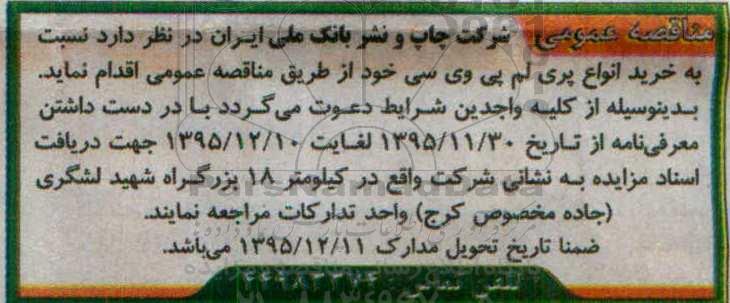 مناقصه عمومی شرکت چاپ و نشر بانک ملی ایران در نظر دارد نسبت
به خرید انواع پری لم پی وی سی خود از طریق مناقصه عمومی اقدام نماید.
بدینوسیله از کلیه واجدین شرایط دعوت می‌گردد با در دست داشتن
معرفی‌نامه از تاریخ ۱۳۹۵/۱۱/۳۰ لغایت ۱۳۹۵/۱۲/۱۰ جهت دریافت
اسناد مزایده به نشانی شرکت واقع در کیلومتر ۱۸ بزرگراه شهید لشگری
(جاده مخصوص کرج) واحد تدارکات مراجعه نمایند.
ضمنا تاریخ تحویل مدارک ۱۳۹۵/۱۲/۱۱ می‌باشد.
تلفن تماس